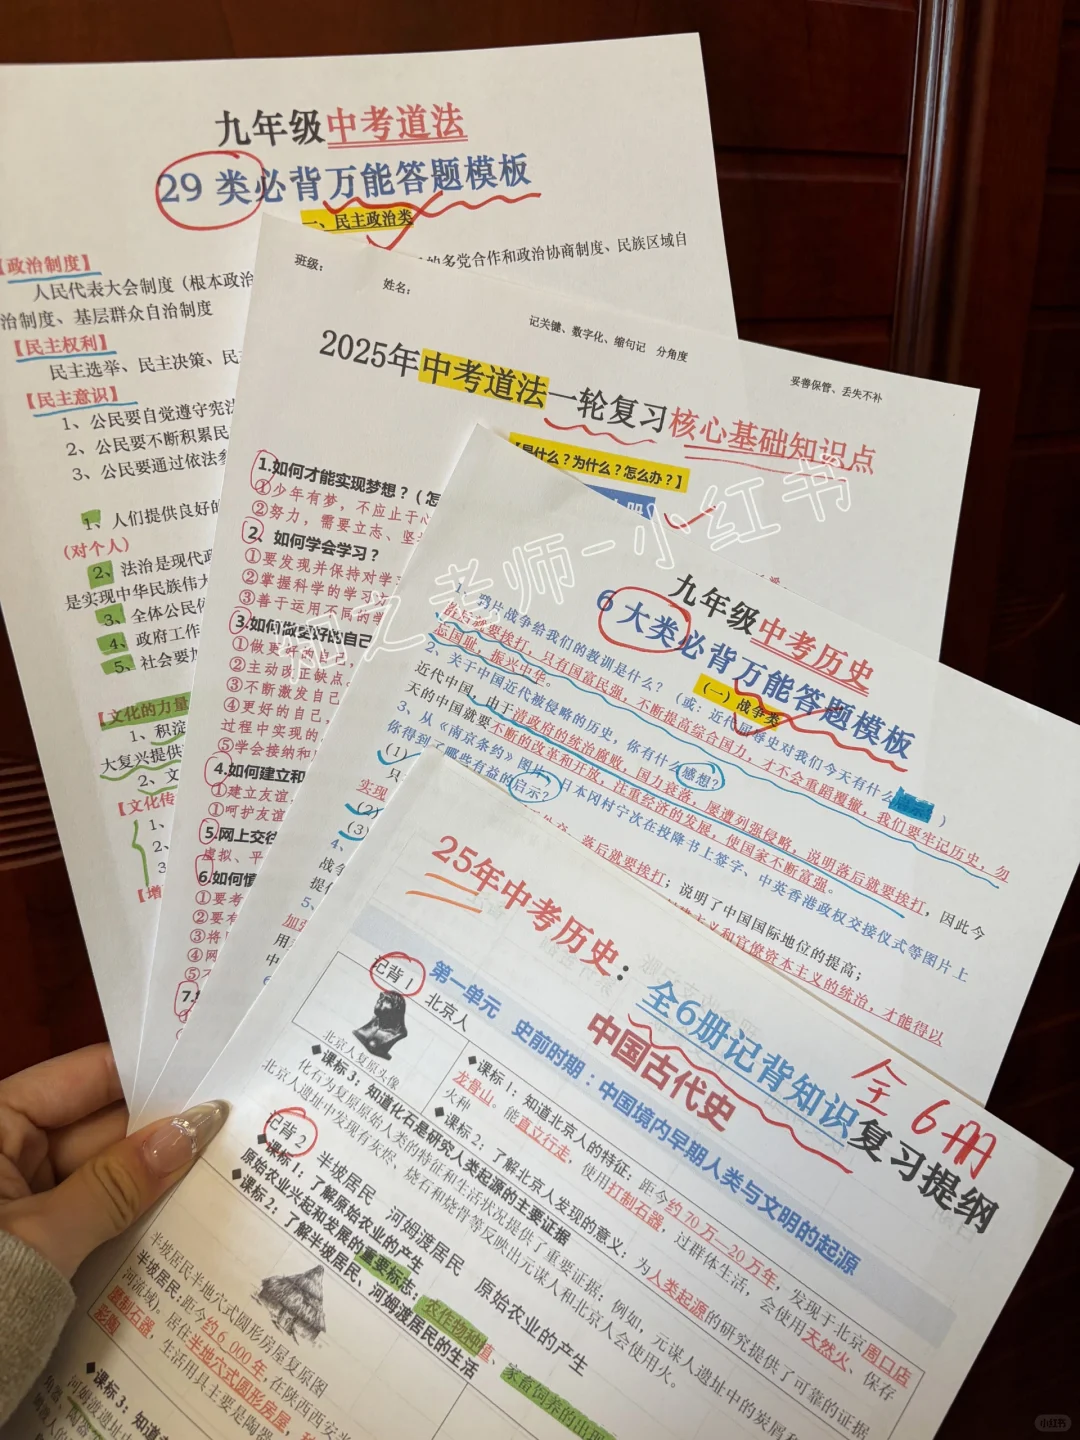 九年级中考道法
29 类必背万能答题模板
一、民主政治类
【政治制度】
人民代表大会制度（根本政治
的多党合作和政治协商制度、民族区域自
治制度、基层群众自治制度
【民主权利】
民主选举、民主决策、民
【民主意识】
1、公民要自觉遵守宪法
2、公民要不断积累民
3、公民要通过依法参
1、人们提供良好的
(对个人)
2、法治是现代政
是实现中华民族伟大
3、全体公民
4、政府工作
5、社会要
【文化的力量
1、积淀
大复兴提供
2、文
【文化传
1、
2、
3
【增
班级：
姓名：
记关键、数字化、缩句记 分角度
妥善保管、丢失不补
2025年中考道法一轮复习核心基础知识点
【是什么？为什么？怎么办？】
1.如何才能实现梦想？（怎
①少年有梦，不应止于心
②努力，需要立志、坚
2. 如何学会学习？
①要发现并保持对学
②掌握科学的学习方
③善于运用不同的学
3.如何做更好的自己
①做更好的自己，
②主动改正缺点、
③不断激发自己
④更好的自己，
过程中实现的。
⑤学会接纳和
4.如何建立和
①建立友谊，
①呵护友谊
5.网上交往
虚拟、平
6.如何慎
①要考
②要有
③将
④网
⑤
7.
九年级中考历史
6 大类必背万能答题模板
（一）战争类
1、鸦片战争给我们的教训是什么？（或：近代屈辱史对我们今天有什么启示？）
落后就要挨打，只有国富民强，不断提高综合国力，才不会重蹈覆辙，我们要牢记历史，勿
忘国耻，振兴中华。
2、关于中国近代被侵略的历史，你有什么感想？
近代中国，由于清政府的统治腐败，国力衰落，屡遭列强侵略，说明落后就要挨打，因此今
天的中国就要不断的改革和开放，注重经济的发展，使国家不断富强。
3、从《南京条约》图片、日本冈村宁次在投降书上签字、中英香港政权交接仪式等图片上
你得到了哪些有益的启示？
(1)
落后就要挨打；说明了中国国际地位的提高；
只
主义和官僚资本主义的统治，才能得以
实现
(2)
(3)
4、
战争
提
5、
加
用
中
25年中考历史：全6册记背知识复习提纲
全6册
中国古代史
第一单元 史前时期：中国境内早期人类与文明的起源
记背 1
北京人
北京人复原头像
◆课标 1：知道北京人的特征：距今约 70 万—20 万年，发现于北京周口店
龙骨山。能直立行走，使用打制石器，过群体生活，会使用天然火、保存
火种
◆课标 2：了解北京人发现的意义：为人类起源的研究提供了可靠的证据
◆课标 3：知道化石是研究人类起源的主要证据
化石为复原原始人类的特征和生活状况提供了重要证据；例如，元谋人遗址中的炭屑
北京人遗址中发现有灰烬、烧石和烧骨等反映出元谋人和北京人会使用火。
记背 2
半坡居民 河姆渡居民 原始农业的产生
◆课标 1：了解原始农业的产生
原始农业兴起和发展的重要标志：农作物种植、家畜饲养的出现
◆课标 2：了解半坡居民、河姆渡居民的生活
半坡居民半地穴式圆形房屋复原图
半坡居民：距今约 6 000 年，在陕西西安
河流域)。居住半地穴式圆形房屋，
磨制石器，生活用具主要是陶器
彩陶
◆课标 3：知道
河姆渡遗址
知之老师-小红书
小红书